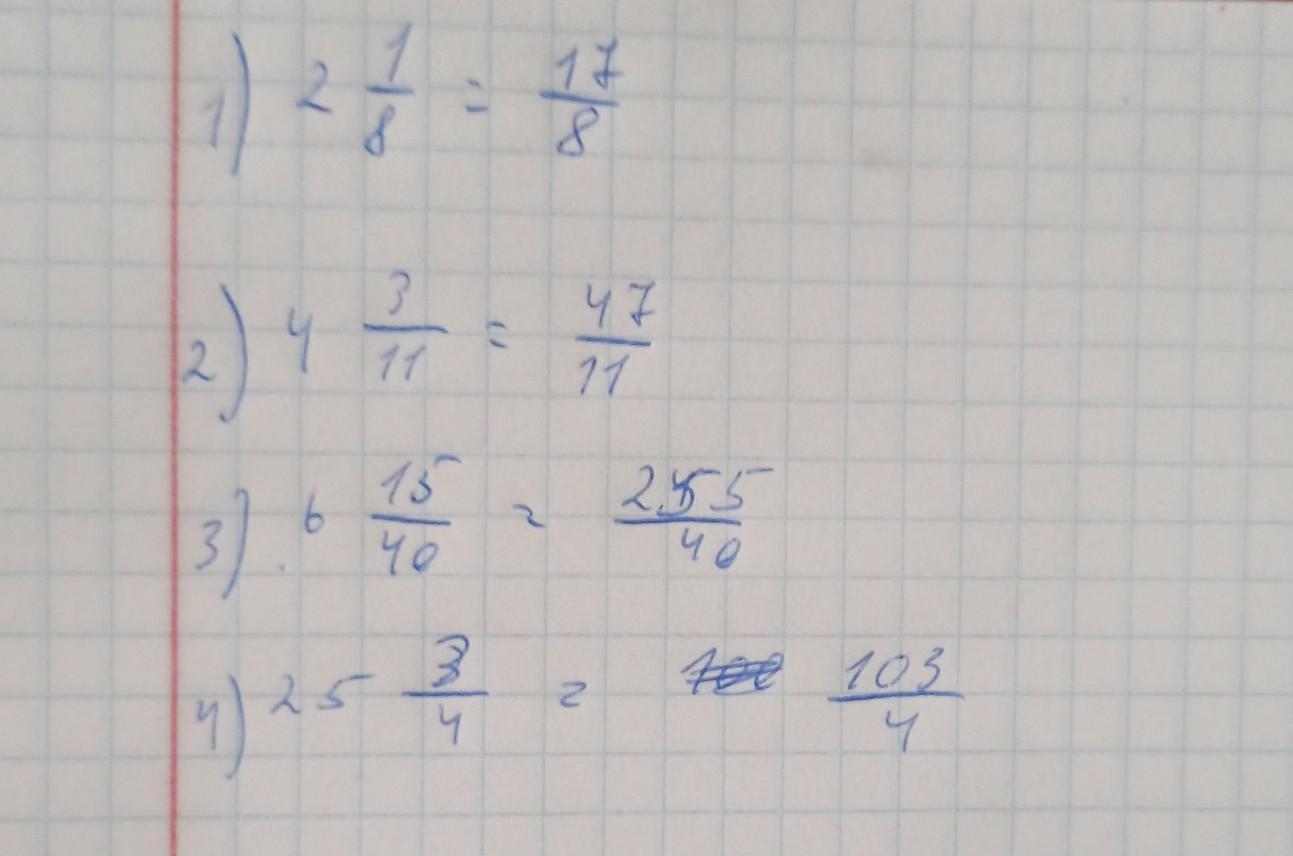 1) 2 1/8 = 17/8
2) 4 3/11 = 47/11
3) 6 15/40 = 255/40
4) 25 3/4 = 103/4